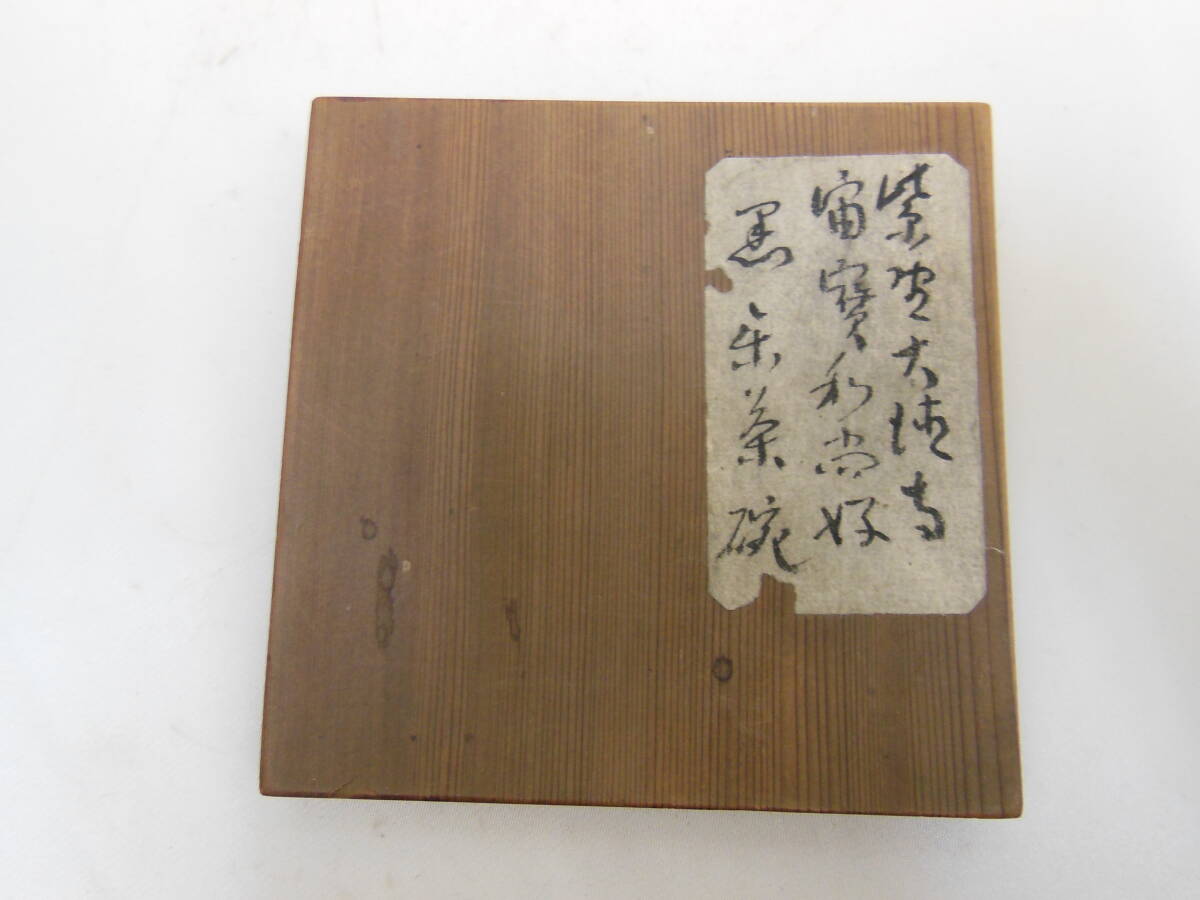 紫野大徳寺
宙寳和尚好
黒楽茶碗